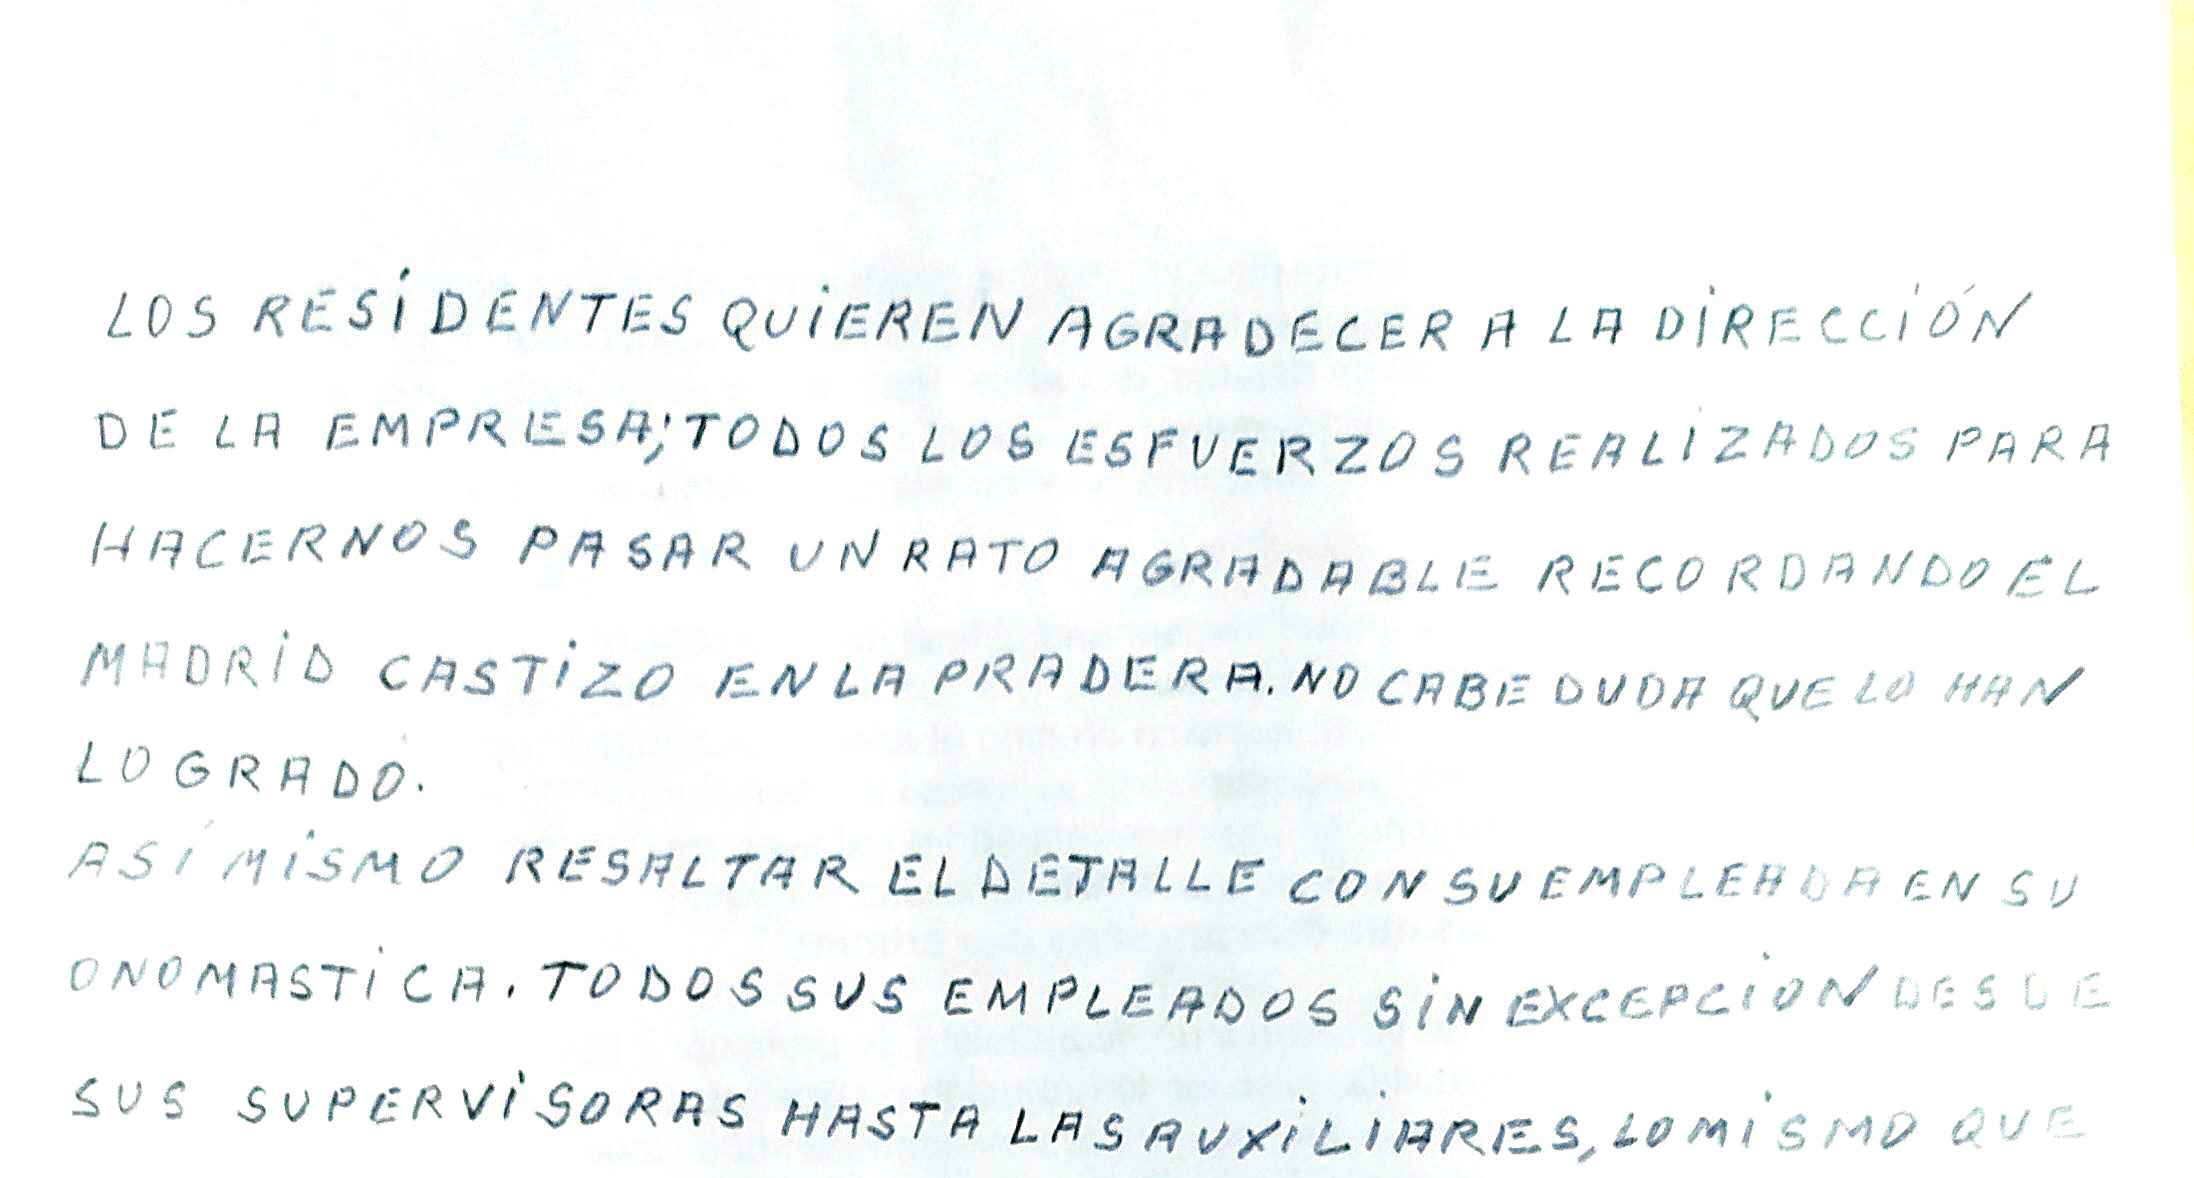 LOS RESIDENTES QUIEREN AGRADECER A LA DIRECCIÓN
DE LA EMPRESA; TODOS LOS ESFUERZOS REALIZADOS PARA
HACERNOS PASAR UN RATO AGRADABLE RECORDANDO EL
MADRID CASTIZO EN LA PRADERA. NO CABE DUDA QUE LO HAN
LOGRADO.
ASÍ MISMO RESALTAR EL DETALLE CON SU EMPLEADA EN SU
ONOMASTICA. TODOS SUS EMPLEADOS SIN EXCEPCION DESDE
SUS SUPERVISORAS HASTA LAS AUXILIARES, LO MISMO QUE